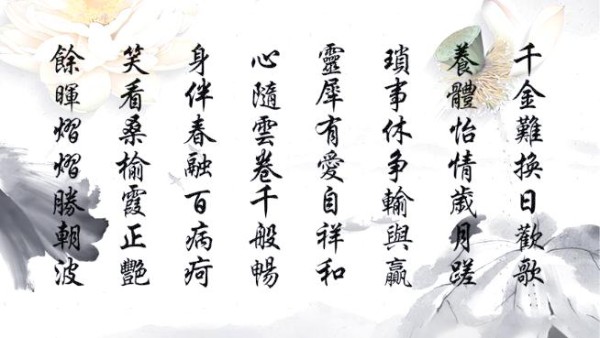 千金難換日歡歌
養體怡情歲月蹉
瑣事休爭輸與贏
靈犀有愛自祥和
心隨雲卷千般暢
身伴春融百病疴
笑看桑榆霞正艷
餘暉熠熠勝朝波